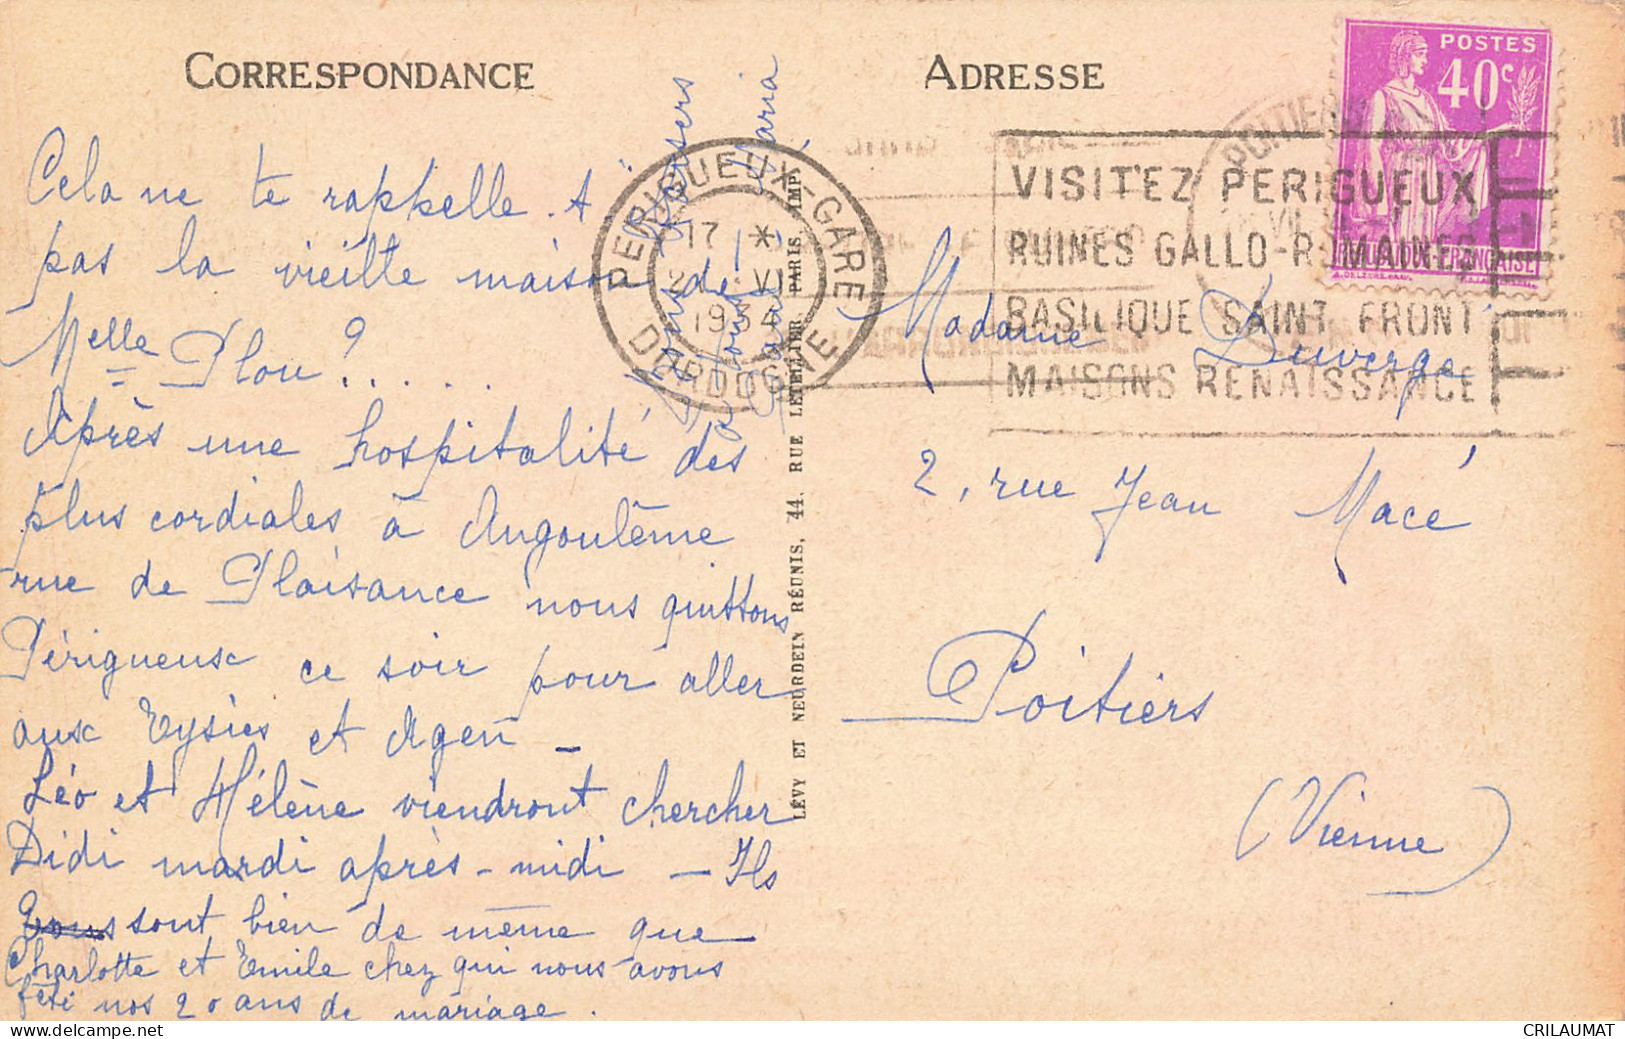 CORRESPONDANCE
Cela ne te rappelle-t-
pas la vieille maison de
Melle Plou ? . . . . .
Après une hospitalité des
plus cordiales à Angoulême
rue de Plaisance nous quittons
Périgueux ce soir pour aller
aux Eysies et Agen —
Léo et Hélène viendront chercher
Didi mardi après-midi — Ils
sont bien de même que
Charlotte et Emile chez qui nous avons
fêté nos 20 ans de mariage.
Baisers
Maria
PERIGUEUX-GARE
17 *
VI
DORDOGNE
LÉVY ET NEURDEIN RÉUNIS, 44, RUE LETELLIER, PARIS IMP.
ADRESSE
POSTES
40c
RÉPUBLIQUE-FRANÇAISE
POITIERS
VISITEZ PERIGUEUX
RUINES GALLO-ROMAINES
BASILIQUE SAINT FRONT
MAISONS RENAISSANCE
Madame Duverge
2, rue Jean Macé
Poitiers
(Vienne)
www.delcampe.net
CRILAUMAT